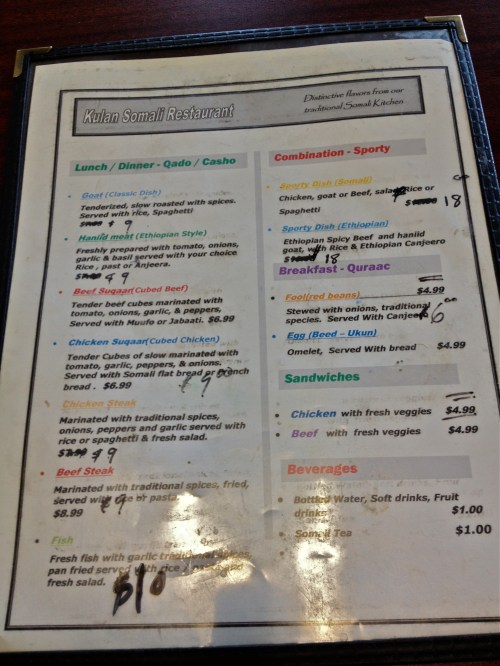 Kulan Somali Restaurant
Distinctive flavors from our
traditional Somali Kitchen
Lunch / Dinner - Qado / Casho
Goat (Classic Dish)
Tenderized, slow roasted with spices.
Served with rice, Spaghetti
$ 9
Haniid meat (Ethiopian Style)
Freshly prepared with tomato, onions,
garlic & basil served with your choice
Rice , past or Anjeera.
$ 9
Beef Suqaar(Cubed Beef)
Tender beef cubes marinated with
tomato, onions, garlic, & peppers,
Served with Muufo or Jabaati. $6.99
Chicken Suqaar(Cubed Chicken)
Tender Cubes of slow marinated with
tomato, garlic, peppers, & onions.
Served with Somali flat bread or French
bread . $6.99 $9
Chicken Steak
Marinated with traditional spices,
onions, peppers and garlic served with
rice or spaghetti & fresh salad.
$7.99 $9
Beef Steak
Marinated with traditional spices, fried,
served with rice or pasta.
$8.99 $9
Fish
Fresh fish with garlic traditional
pan fried served with rice
fresh salad.
$10
Combination - Sporty
Sporty Dish (Somali)
Chicken, goat or Beef, salad Rice or
Spaghetti $ 18
Sporty Dish (Ethiopian)
Ethiopian Spicy Beef and haniid
goat, with Rice & Ethiopian Canjeero
$ 18
Breakfast - Quraac
Fool(red beans) $4.99
Stewed with onions, traditional
species. Served With Canjeer 6
Egg (Beed – Ukun)
Omelet, Served With bread $4.99
Sandwiches
Chicken with fresh veggies $4.99
Beef with fresh veggies $4.99
Beverages
Bottled Water, Soft drinks, Fruit
drinks $1.00
Somali Tea $1.00